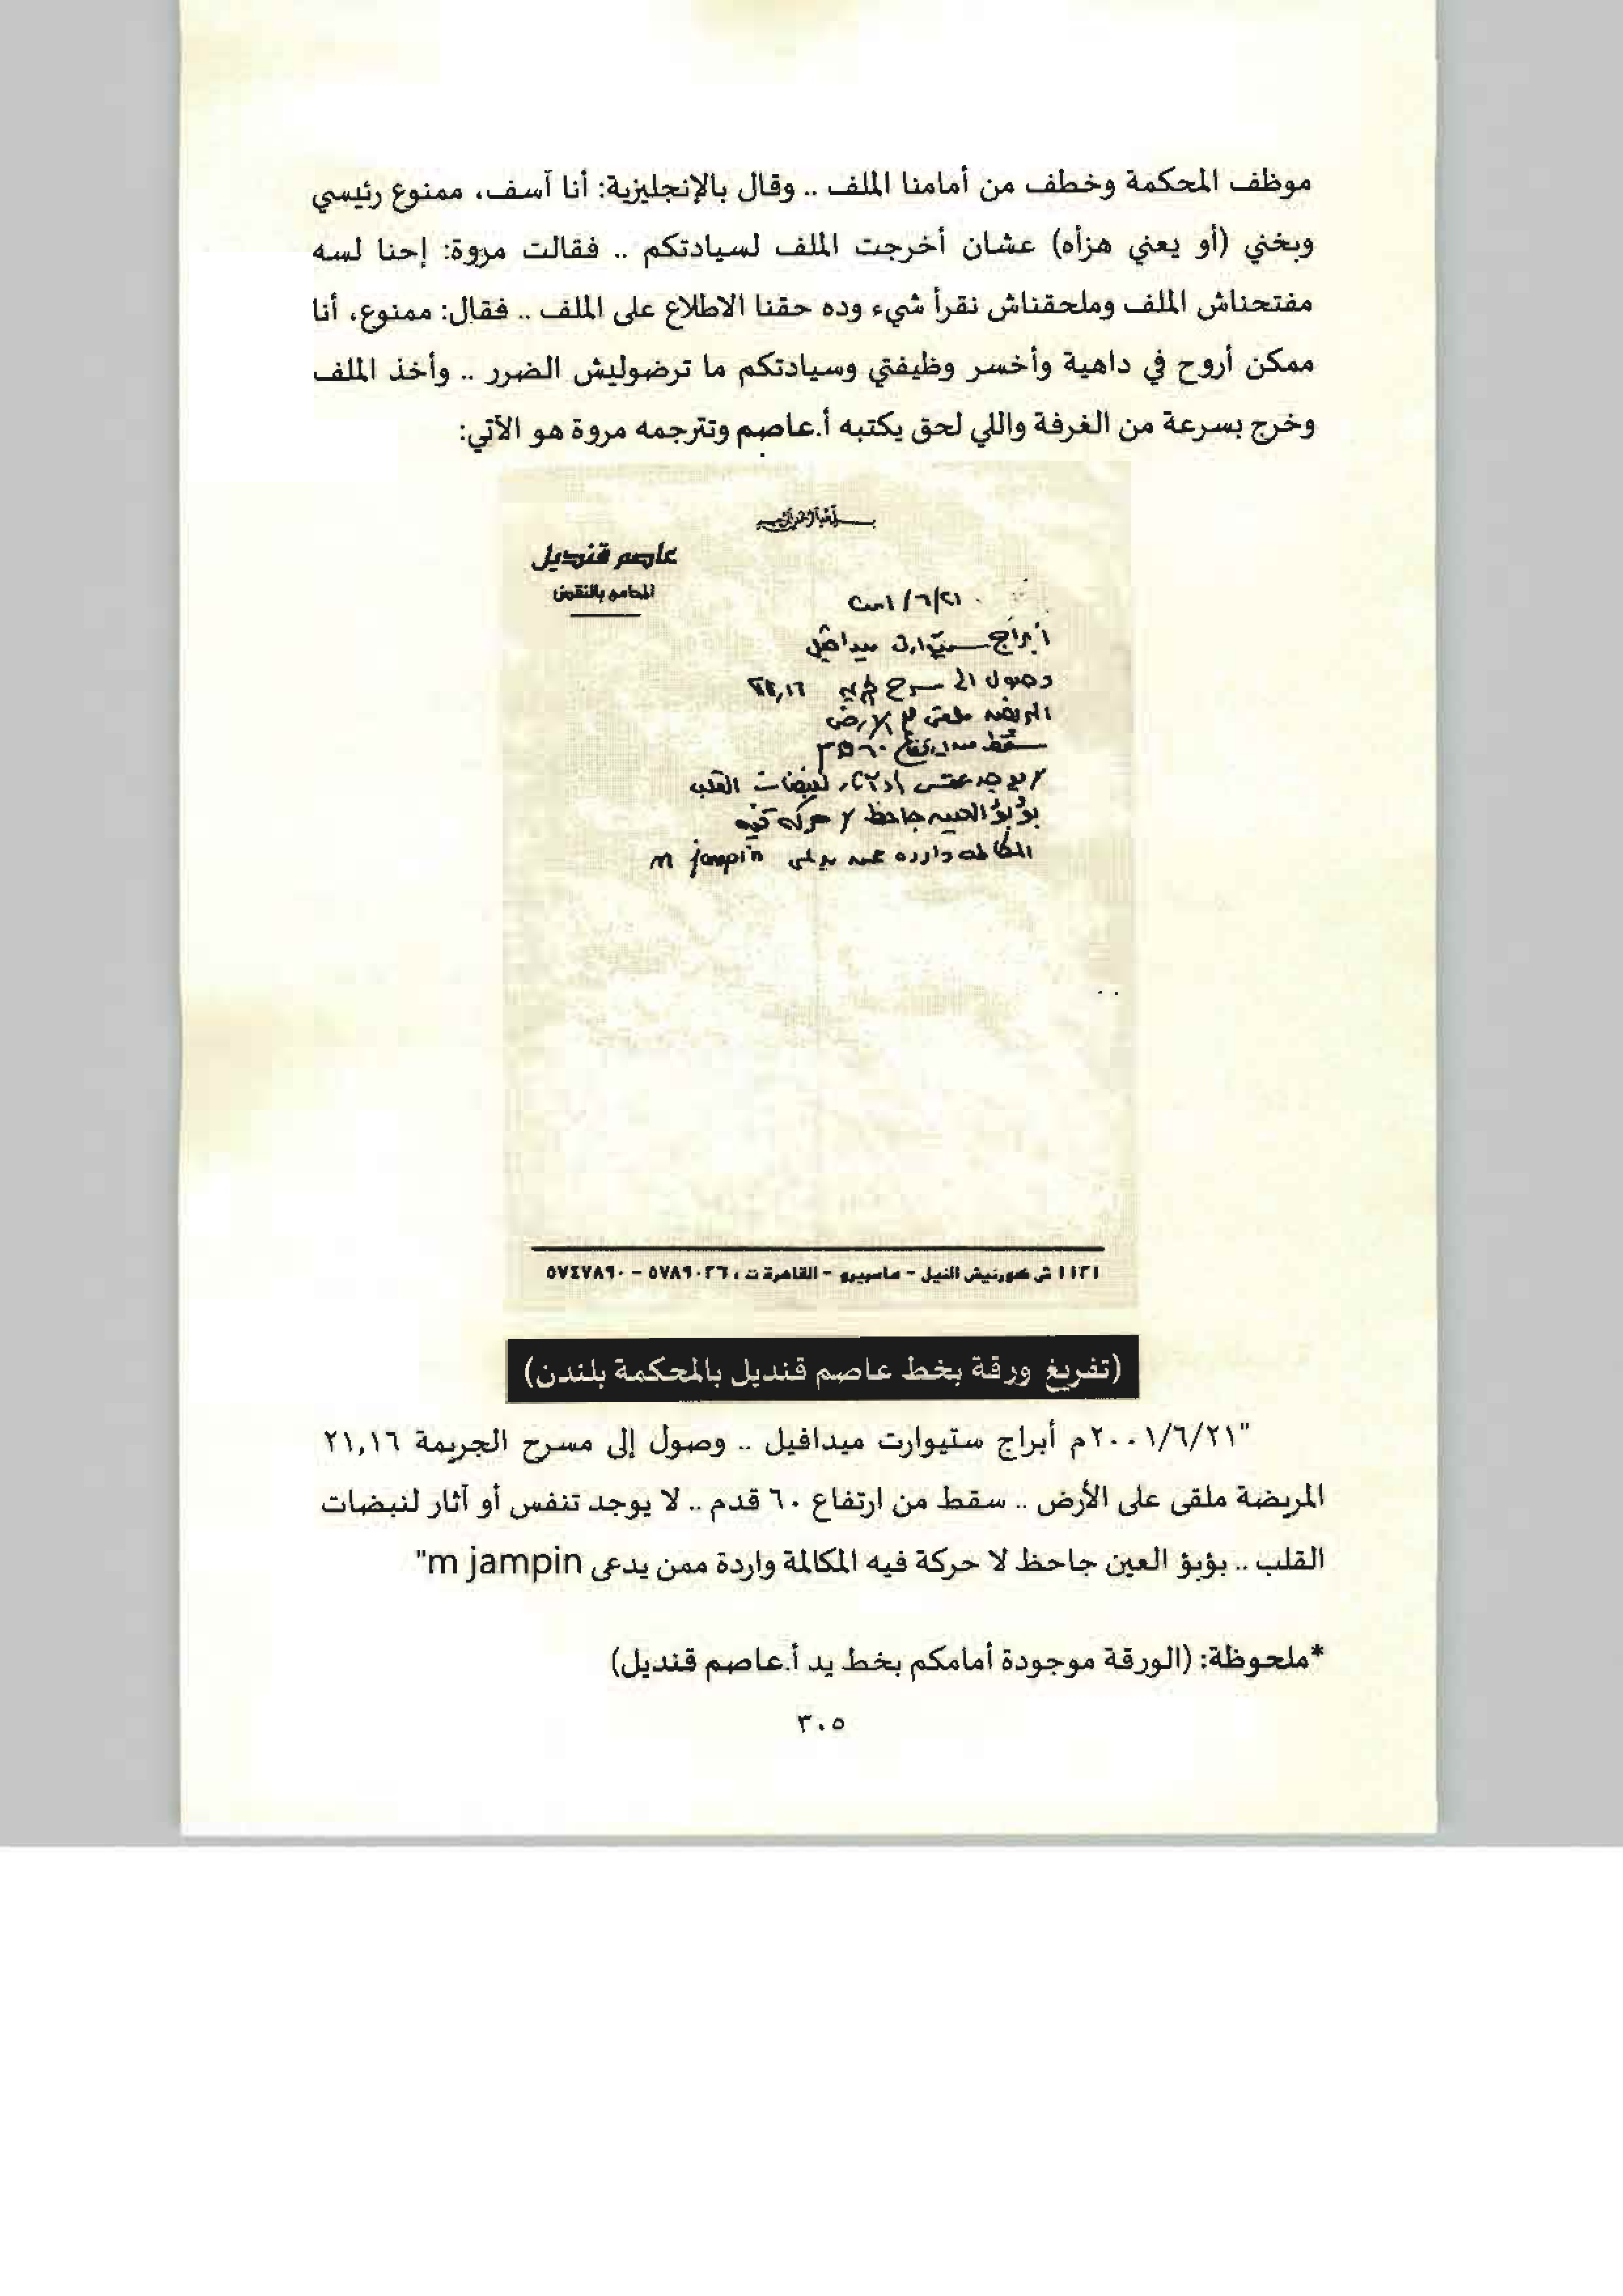 موظف المحكمة وخطف من أمامنا الملف .. وقال بالإنجليزية: أنا آسف، ممنوع رئيسي
وبخني (أو يعني هزأه) عشان أخرجت الملف لسيادتكم .. فقالت مروة: إحنا لسه
مفتحناش الملف وملحقناش نقرأ شيء وده حقنا الاطلاع على الملف .. فقال: ممنوع، أنا
ممكن أروح في داهية وأخسر وظيفتي وسيادتكم ما ترضوليش الضرر .. وأخذ الملف
وخرج بسرعة من الغرفة واللي لحق يكتبه أ.عاصم وتترجمه مروة هو الآتي:
بسم الله الرحمن الرحيم
عاصم قنديل
المحامى بالنقض
٢٠٠١/٦/٢١
أبراج ستيوارت ميدافيل
وصول الى مسرح ٢١,١٦
المريضه ملقى على الارض
سقط من ارتفاع ٦٠ قدم
لا يوجد تنفس لنبضات القلب
بؤبؤ العين جاحظ لا حركة فيه
المكالمه وارده ممن يدعى m jampin
١١٢١ ش كورنيش النيل - ماسبيرو - القاهرة ت : ٥٧٨٩٠٢٦ - ٥٧٤٧٨٩٠
(تفريغ ورقة بخط عاصم قنديل بالمحكمة بلندن)
"٢٠٠١/٦/٢١م أبراج ستيوارت ميدافيل .. وصول إلى مسرح الجريمة ٢١,١٦
المريضة ملقى على الأرض .. سقط من ارتفاع ٦٠ قدم .. لا يوجد تنفس أو آثار لنبضات
القلب .. بؤبؤ العين جاحظ لا حركة فيه المكالمة واردة ممن يدعى m jampin"
*ملحوظة: (الورقة موجودة أمامكم بخط يد أ.عاصم قنديل)
٣٠٥